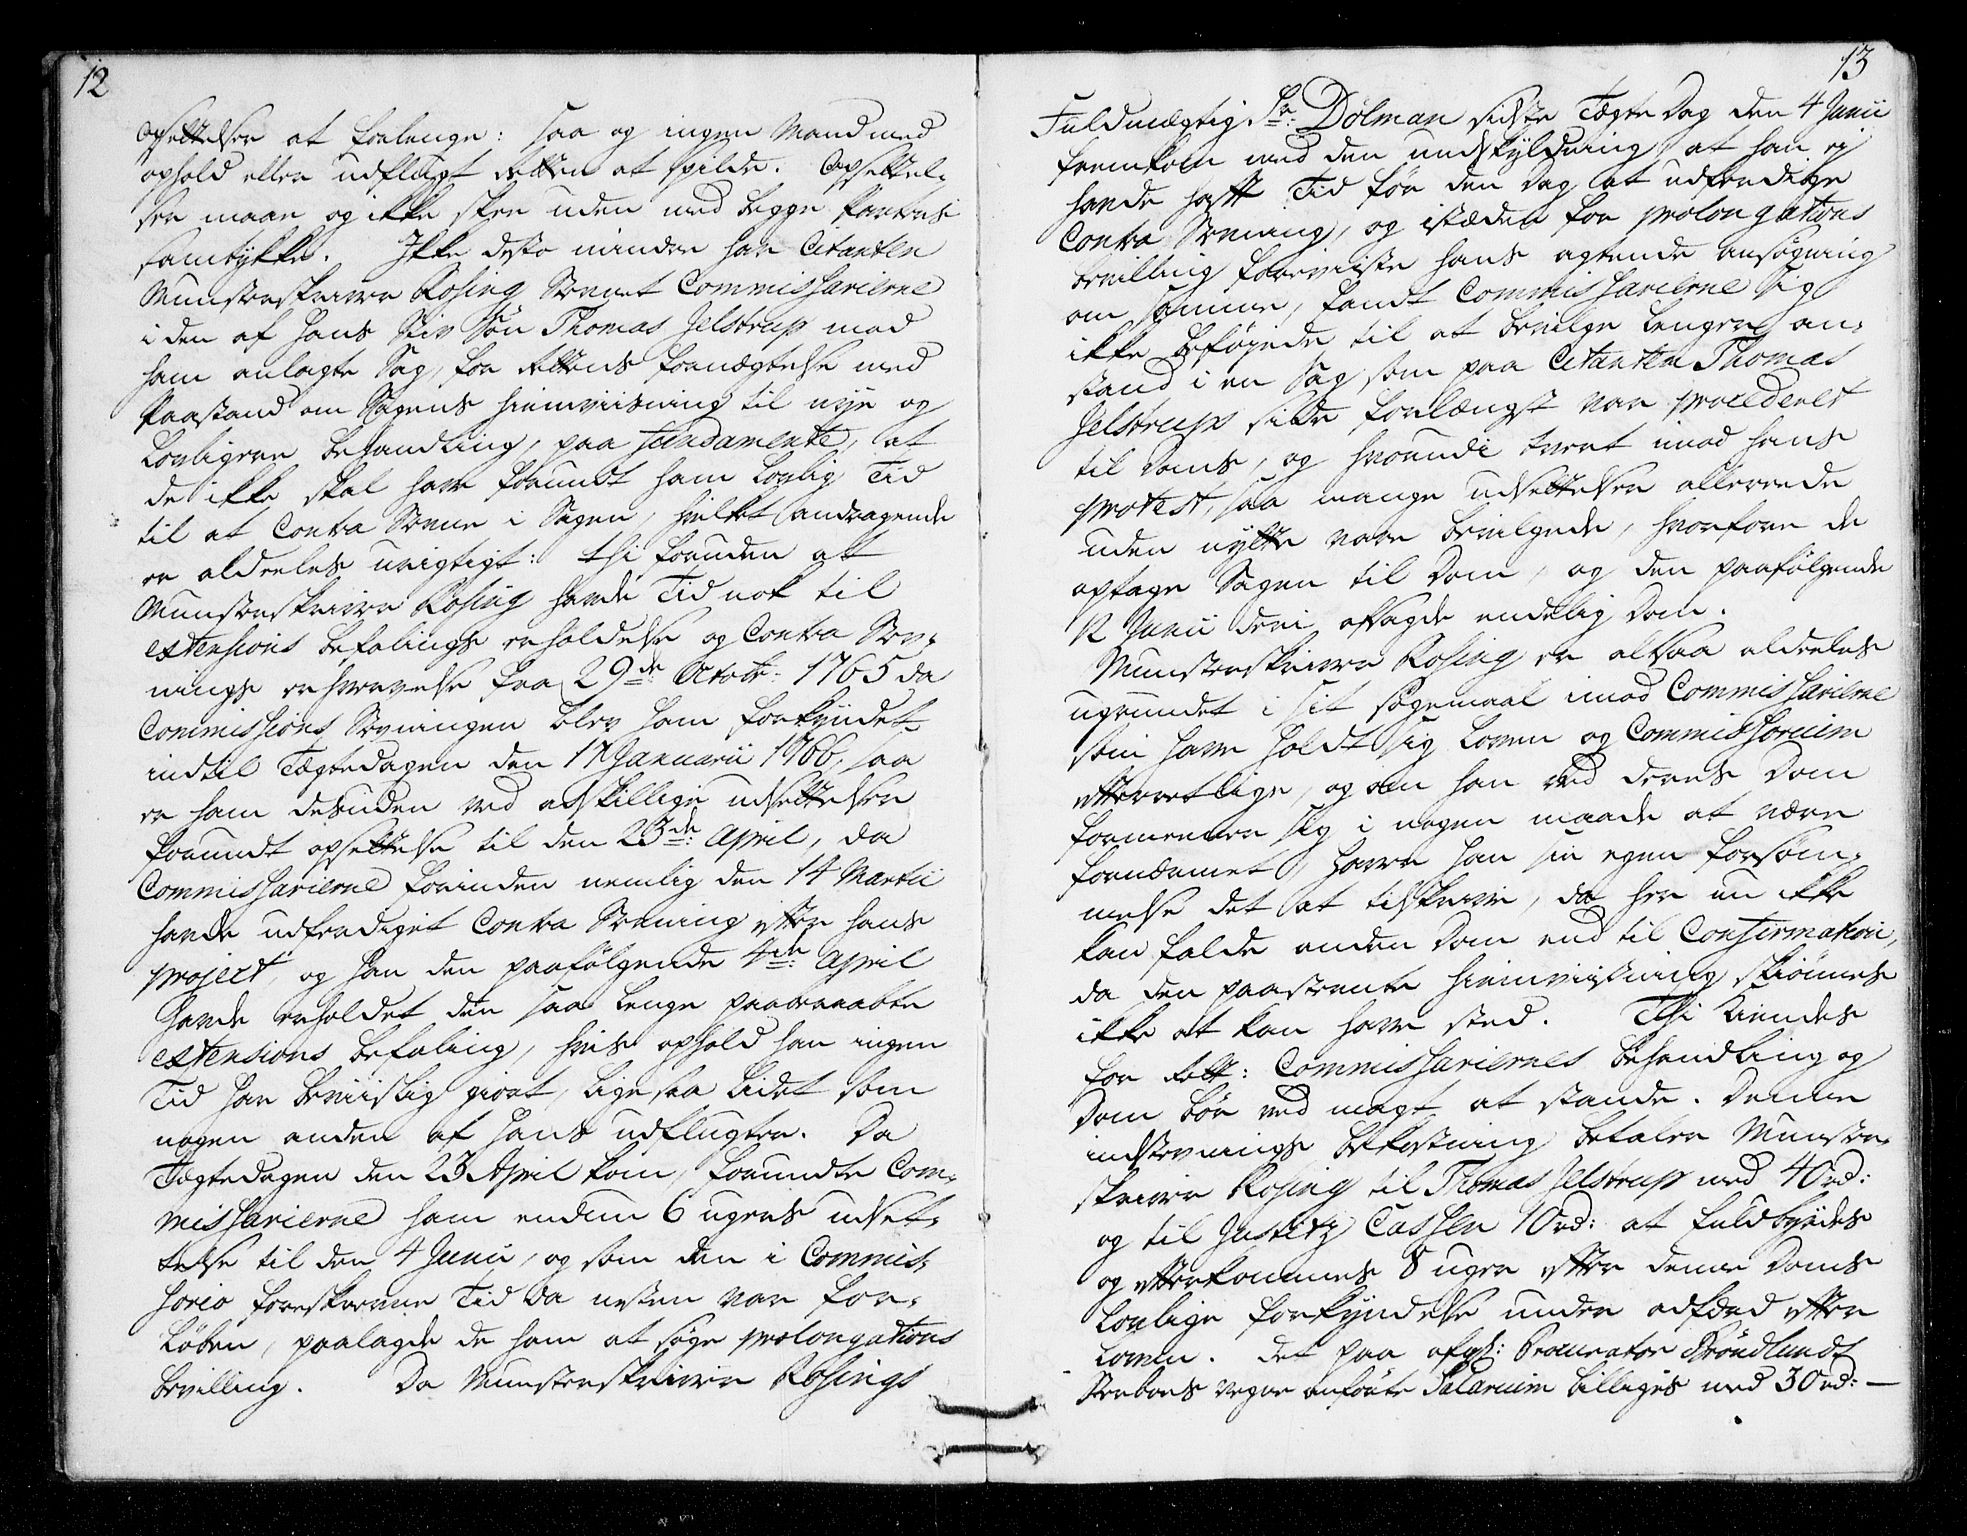 12
Opsettelser at forlenge: saa og ingen Mand med
ophold eller udflugt Retten at spilde. Opsettel-
ser maae og ikke skee uden med begge Parters
samtykke. Ikke desto minder har Citanten
Munsterskriver Rosing Stevnet Commissarierne
i den af Hans Stiv Søn Thomas Jelstrup mod
ham anlagte Sag, for Rettens fornægtelse med
Paastand om Sagens hiemviisning til nye og
Lovligere behandling, paa fundamente, at
de ikke skal have forundt ham Lovlig Tid
til at Contra Stevne i Sagen, hvilket andragende
er aldeeles urigtigt: thi foruden at
Munsterskriver Rosing havde Tid nok til
extensions befalings erholdelse og Contra Stev-
nings erhvervelse fra 29de Octobr: 1765 da
Commissions Stevningen blev ham forkyndet
indtil Tægtedagen den 17 Januarii 1766, saa
er ham desuden ved adskillige udsettelser
forundt opsettelse til den 23de April, da
Commissarierne forinden nemlig den 14 Martii
havde udferdiget Contra Stevning efter hans
project, og han den paafølgende 4de April
havde erholdet den saa lenge paaraabte
extensions befaling, hvis ophold han ingen
Tid har beviislig giort, lige saa lidet som
nogen anden af hans udflugter. Da
Tægtedagen den 23 April kom, forundte Com-
missarierne ham endnu 6 ugers udset-
telse til den 4 Junii, og som den i Commis-
sorio foreskrevne Tid da nesten var for-
løben, paalagde de ham at søge prolongations
bevilling. Da Munsterskriver Rosings
13
Fuldmægtig Sr: Dølman sidste Tægte Dag den 4 Junii
fremkom med den undskyldning, at han ej
havde haft Tid før den Dag at udferdige
Contra Stevning, og istæden for prolongations
bevilling foreviste hans agtende ansøgning
om samme, fandt Commissarierne sig
ikke beføjede til at bevilge lengere an-
stand i en Sag, som paa Citanten Thomas
Jelstrups side forlængst var procederet
til Doms, og hvorudi tvert imod hans
protest, saa mange udsettelser allerede
uden nytte vare bevilgede, hvorfore de
optage Sagen til Dom, og den paafølgende
12 Junii deri afsagde endelig Dom.
Munsterskriver Rosing er altsaa aldeeles
ugrundet i sit søgemaal imod Commissarierne
som have holdt sig Loven og Commissorium
efterretlige, og om han ved deres Dom
formeener sig i nogen maade at være
fornærmet, haver han sin egen forsøm-
melse det at tilskrive, da her nu ikke
kan falde anden Dom end til Confirmation,
da den paastevnte hiemviisning skiønnes
ikke at kan have sted. Thi kiendes
for Rett: Commissariernes behandling og
Dom bør ved magt at stande. Denne
indstevnings bekostning betaler Munster-
skriver Rosing til Thomas Jelstrup med 40 rd:
og til Justitz Cassen 10 rd: at fuldbyrdes
og efterkommes 8 uger efter denne Doms
Lovlige forkyndelse under adfærd efter
Loven. Det paa afgl: Procurator Brøndlunds
Sterboes vegne anførte Salarium billiges med 30 rd: —